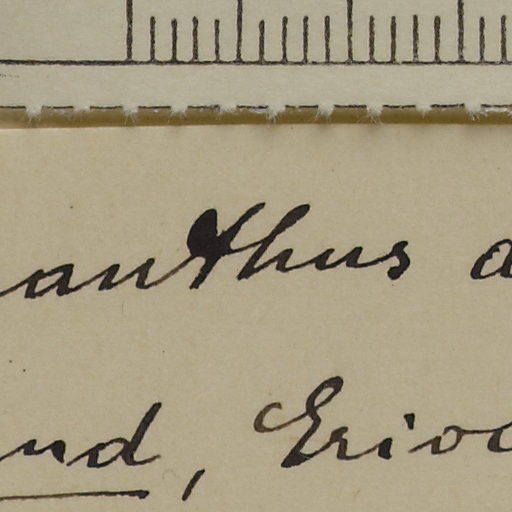 anthus a
nd, Erioc